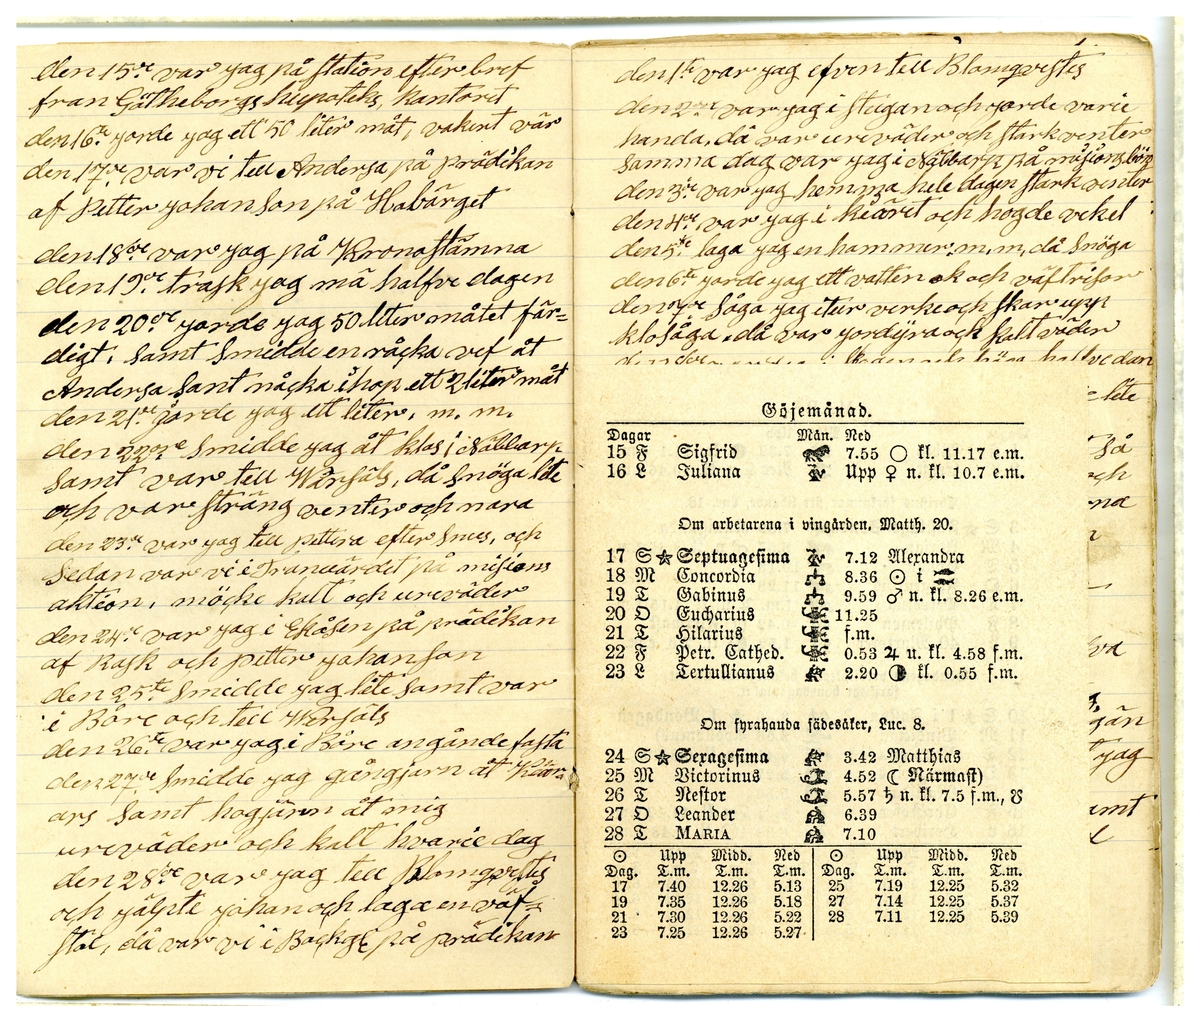 den 15de var jag på station efter bref
från Götheborgs heipoteks, kantoret
den 16te gorde jag ett 50 liter måt, vakert vär
den 17de var vi tell Andersa på prädikan
af Petter Johanson på Habärget
den 18de var jag på Kronostämna
den 19de trask jag mä halfve dagen
den 20de gorde jag 50 liter måtet fär=
digt, samt smidde en råcka vef åt
Andersa samt nåcka ihop ett 2 liter måt
den 21de gorde jag ett liter, m. m.
den 22dre smidde jag åt klas i Nabbarp
samt var tell Wersäls, då snöga lite
och var sträng venter och nara
den 23de var jag tell pettera efter smes, och
sedan var vi i Tranvärdet på misions
aktion, möcke kalt och ureväder
den 24de var jag i Ekåsen på prädikan
af Rask och petter johanson
den 25te smidde jag lite samt var
i Böre och tell Wersäls
den 26te var jag i Böre angånde fasta
den 27de smidde jag gångjarn åt
ars samt hogjärn åt mig
ureväder och kalt hvarie dag
den 28de var jag tell Blomqvistes
och jälpte johan och laga en väf=
stol, då var vi i Backge på prädikan
den 1te var jag efven tell Blomqvistes
den 2dre var jag i stugan och gorde varie
handa, då var ureväder och stark venter
samma dag var jag i Näbbarp på misions bön
den 3de var jag hemma hele dagen stark venter
den 4de var jag i kiäret och hogde vekel
den 5te laga jag en hammer, m, m, då snöga
den 6te gorde jag ett vatten ok och väftrisor
den 7de såga jag itur verke och skar upp
klosåga, då var jordyra och kalt väder
Göjemånad.
Dagar Mån. Ned
15 F Sigfrid 7.55 ○ kl. 11.17 e.m.
16 L Juliana Upp ♀ n. kl. 10.7 e.m.
Om arbetarena i vingården, Matth. 20.
17 S ☆ Septuagesima 7.12 Alexandra
18 M Concordia 8.36 ☉ i ♓
19 T Gabinus 9.59 ♂ n. kl. 8.26 e.m.
20 O Eucharius 11.25
21 T Hilarius f.m.
22 F Petr. Cathed. 0.53 ♃ n. kl. 4.58 f.m.
23 L Tertullianus 2.20 ◑ kl. 0.55 f.m.
Om fyrahanda sädesåker, Luc. 8.
24 S ☆ Sexagesima 3.42 Matthias
25 M Victorinus 4.52 ☾ Närmast)
26 T Nestor 5.57 ♄ n. kl. 7.5 f.m., ☋
27 O Leander 6.39
28 T MARIA 7.10
☉ Upp Midd. Ned ☉ Upp Midd. Ned
Dag. T.m. T.m. T.m. Dag. T.m. T.m. T.m.
17 7.40 12.26 5.13 25 7.19 12.25 5.32
19 7.35 12.26 5.18 27 7.14 12.25 5.37
21 7.30 12.26 5.22 28 7.11 12.25 5.39
23 7.25 12.26 5.27